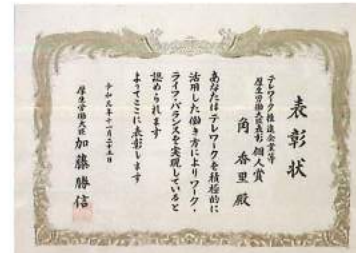 表彰状
テレワーク推進企業等
厚生労働大臣表彰 個人賞
角 香里 殿
あなたはテレワークを積極的に
活用した働き方によりワーク・
ライフ・バランスを実現していると
認められます
よってここに表彰します
令和元年十一月二十五日
厚生労働大臣 加藤勝信